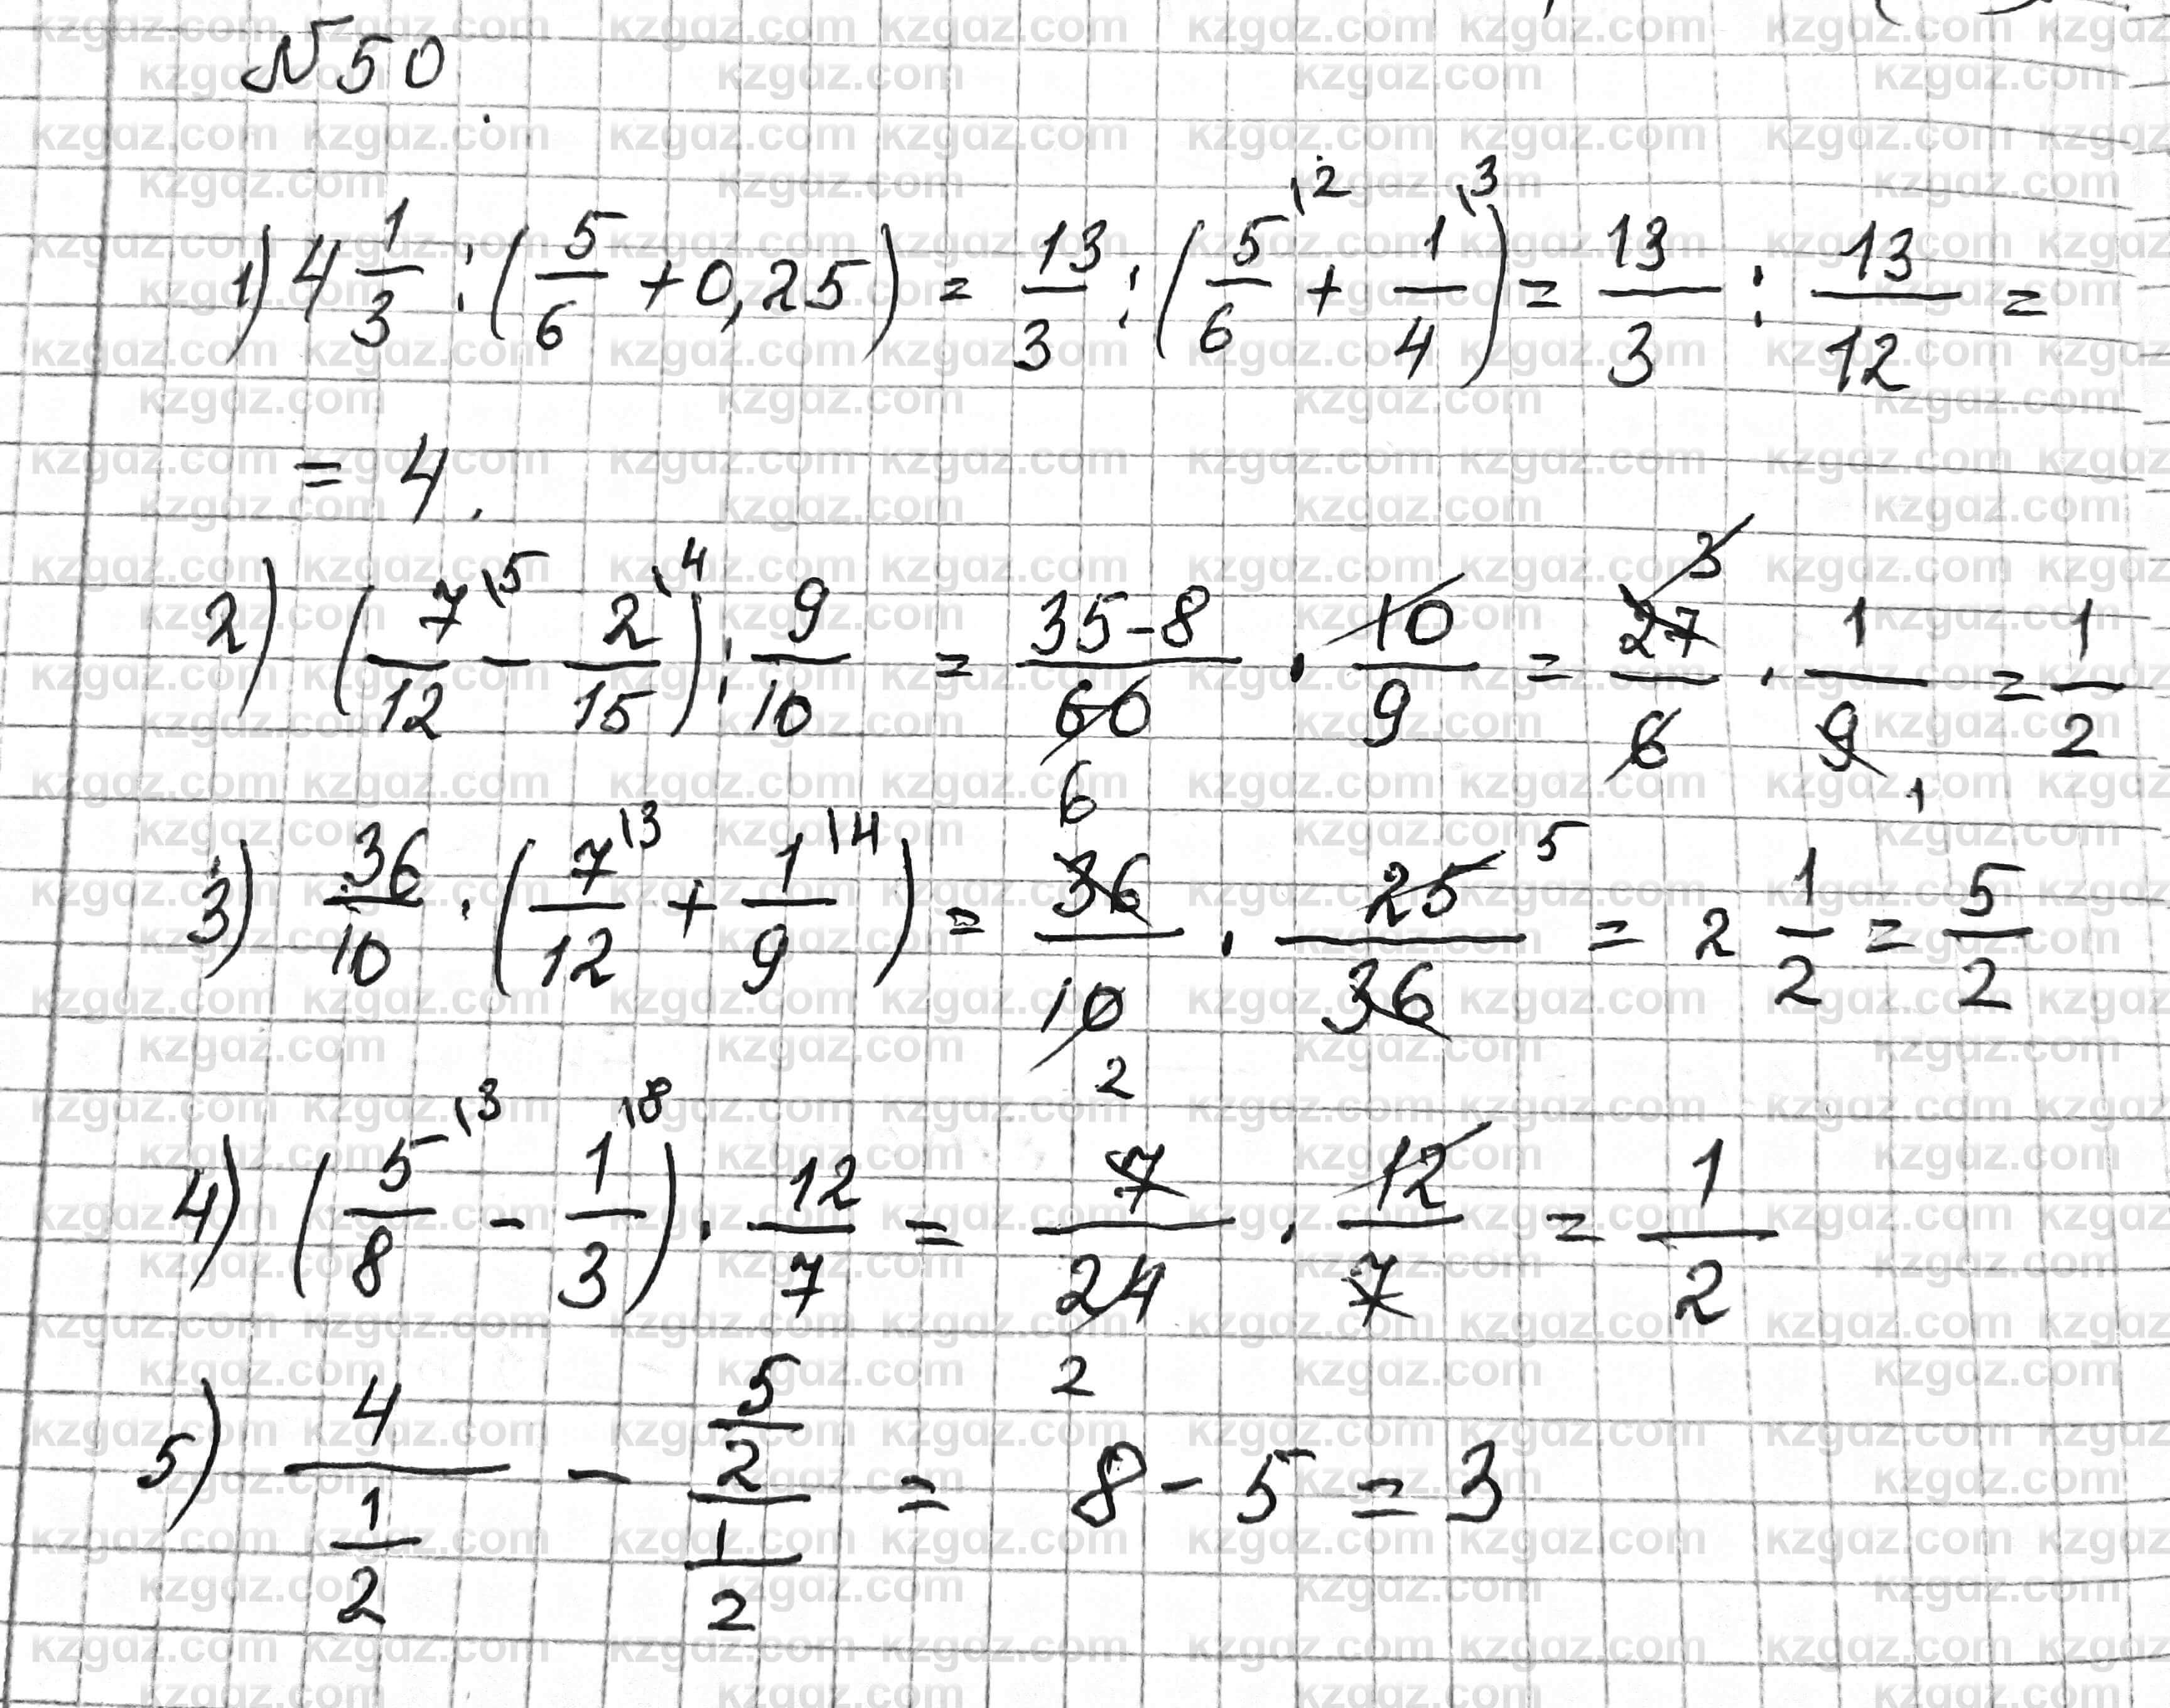 № 50.
1) 4 1/3 : (5/6 + 0,25) = 13/3 : (5/6 \2 + 1/4 \3) = 13/3 : 13/12 =
= 4.
2) (7/12 \5 - 2/15 \4) : 9/10 = (35-8)/60 · 10/9 = 27/6 · 1/9 = 1/2
6 3 1
3) 36/10 · (7/12 \3 + 1/9 \4) = 36/10 · 25/36 = 2 1/2 = 5/2
5 2
4) (5/8 \3 - 1/3 \8) · 12/7 = 7/24 · 12/7 = 1/2
2
5) 4/(1/2) - (5/2)/(1/2) = 8 - 5 = 3
kzgdz.com